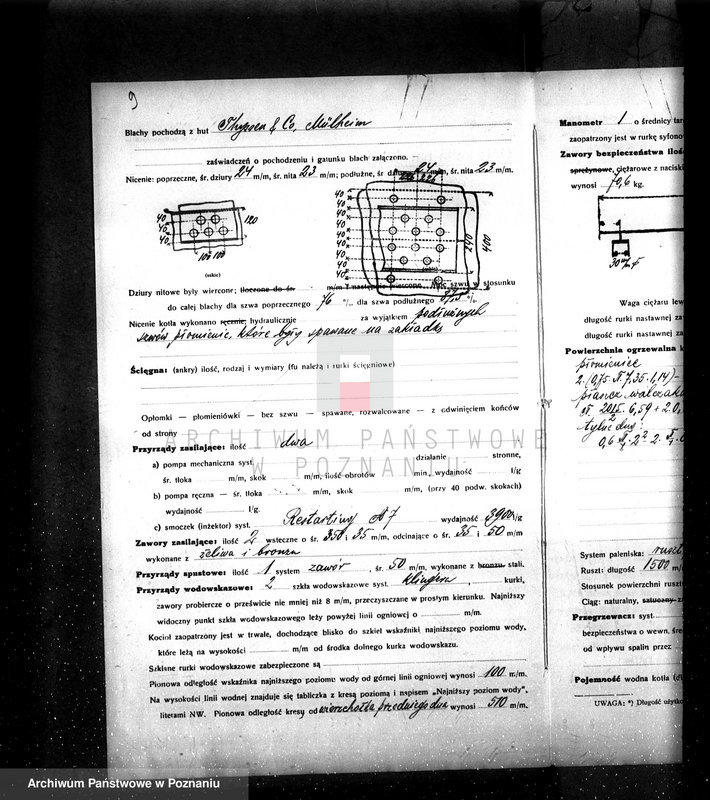 9
Blachy pochodzą z hut Thyssen & Co, Mülheim
zaświadczeń o pochodzeniu i gatunku blach załączono. —
Nicenie: poprzeczne, śr. dziury 24 m/m, śr. nita 23 m/m; podłużne, śr dziury 24 m/m, śr. nita 23 m/m.
40
40
40
120
100 100
(szkic)
40
40
40
40
40
40
40
40
240
400
Dziury nitowe były wiercone; tłoczone do śr. m/m i następnie wiercone. Moc szwu w stosunku
do całej blachy dla szwu poprzecznego 76 % dla szwu podłużnego %.
Nicenie kotła wykonano ręcznie; hydraulicznie za wyjątkiem podłużnych
szwów płomienic, które były spawane na zakładkę
Ścięgna: (ankry) ilość, rodzaj i wymiary (tu należą i rurki ścięgniowe)
Opłomki — płomieniówki — bez szwu — spawane, rozwalcowane — z odwinięciem końców
od strony
Przyrządy zasilające: ilość dwa
a) pompa mechaniczna syst. działanie stronne,
śr. tłoka m/m, skok m/m, ilość obrotów min., wydajność l/g
b) pompa ręczna — śr. tłoka m/m, skok m/m, (przy 40 podw. skokach)
wydajność l/g.
c) smoczek (inżektor) syst. Restarting N 7 wydajność 3900 l/g
Zawory zasilające: ilość 2 wsteczne o śr. 35 i 35 m/m, odcinające o śr. 35 i 50 m/m
wykonane z żeliwa i bronzu
Przyrządy spustowe: ilość 1 system zawór, śr. 50 m/m, wykonane z bronzu, stali.
Przyrządy wodowskazowe: 2 szkła wodowskazowe syst. Klingera, kurki,
zawory probiercze o prześwicie nie mniej niż 8 m/m, przeczyszczane w prostym kierunku. Najniższy
widoczny punkt szkła wodowskazowego leży powyżej linii ogniowej o m/m.
Kocioł zaopatrzony jest w trwałe, dochodzące blisko do szkieł wskaźniki najniższego poziomu wody,
które leżą na wysokości m/m od środka dolnego kurka wodowskazu.
Szklane rurki wodowskazowe zabezpieczone są
Pionowa odległość wskaźnika najniższego poziomu wody od górnej linii ogniowej wynosi 100 m/m.
Na wysokości linii wodnej znajduje się tabliczka z kresą poziomą i napisem „Najniższy poziom wody”,
literami NW. Pionowa odległość kresy od wierzchołka przedniego dna wynosi 510 m/m.
Manometr 1 o średnicy tar
zaopatrzony jest w rurkę syfono
Zawory bezpieczeństwa iloś
sprężynowe, ciężarowe z nacisk
wynosi 70,6 kg.
Waga ciężaru lew
długość rurki nastawnej za
długość rurki nastawnej za
Powierzchnia ogrzewalna k
płomienice
2.(0,75.π.7,35.1,14)−
płaszcz walczaka
tylne dno:
System paleniska: ruszt
Ruszt: długość 1500 m/
Stosunek powierzchni ruszt
Ciąg: naturalny, sztuczny
Przegrzewacz: syst.
bezpieczeństwa o wewn. śre
od wpływu spalin przez
Pojemność wodna kotła (d
UWAGA: *) Długość użytko
ARCHIWUM PAŃSTWOWE
W POZNANIU
Archiwum Państwowe w Poznaniu